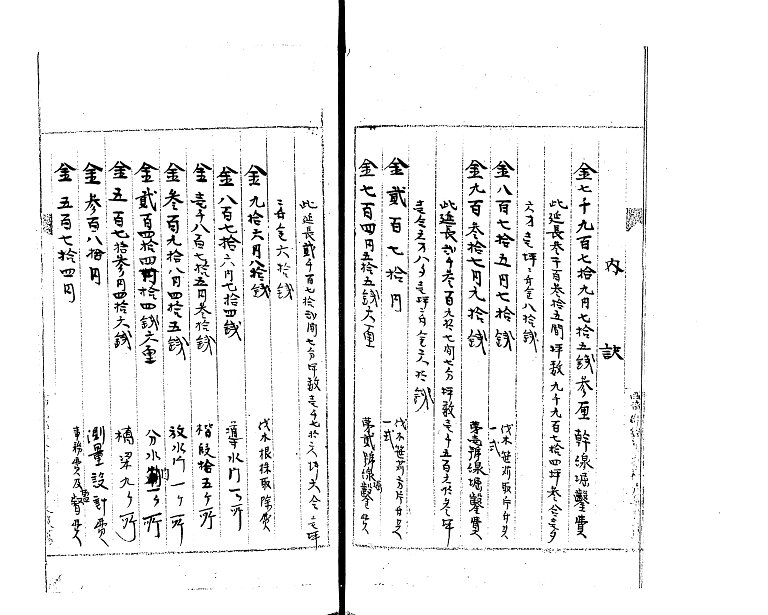 内訳
金七千九百七拾九円七拾五銭参厘 幹線堀鑿費
此延長参千百参拾五間坪数九千九百七拾四坪参合壱勺
六才壱坪ニ付金八拾銭
金八百七拾五円七拾銭 伐木
一式
金九百参拾七円九拾銭 第壱号線堀鑿費
此延長弐千参百九拾七間七分坪数壱千五百六拾参坪
壱坪ニ付金六拾銭
金貳百七拾円 伐木
一式
金七百四円五拾五銭六厘 第貳號線堀鑿費
此延長貳千百七拾弐間七分坪数壱千七拾六坪六合壱
ニ付金六拾銭
金九拾六円八拾銭 伐木根株取除費
金八百七拾六円七拾四銭 導水門一ヶ所
金壱千八百七拾五円参拾銭 階段拾五ヶ所
金参百九拾八円四拾五銭 放水門一ヶ所
金貳百四拾四円拾四銭六厘 分水門一ヶ所
金五百七拾参円四拾六銭 橋梁九ヶ所
金参百八拾円 測量設計費
金五百七拾四円 事務費及監督費